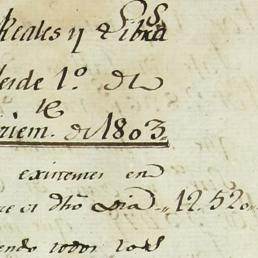 Reales y e Libra
desde 1º de
re
ziem. de 1803.
existentes en
re el dho Dia 12.520
endo todos los